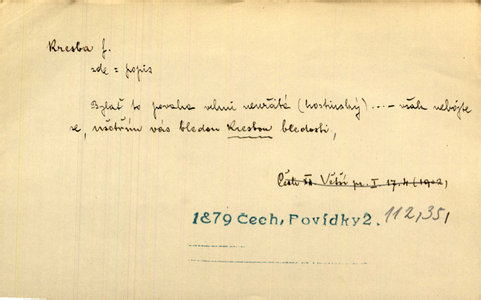 Kresba f.
zde = popis
Bylať to povaha velmi nevřátá (hostinský) ... – však nebojte
se, ušetřím vás bledou kresbou bledosti,
Čech Sv. Větší pr. I. 17.4 (1902)
1879 Čech, Povídky 2. 112,35,